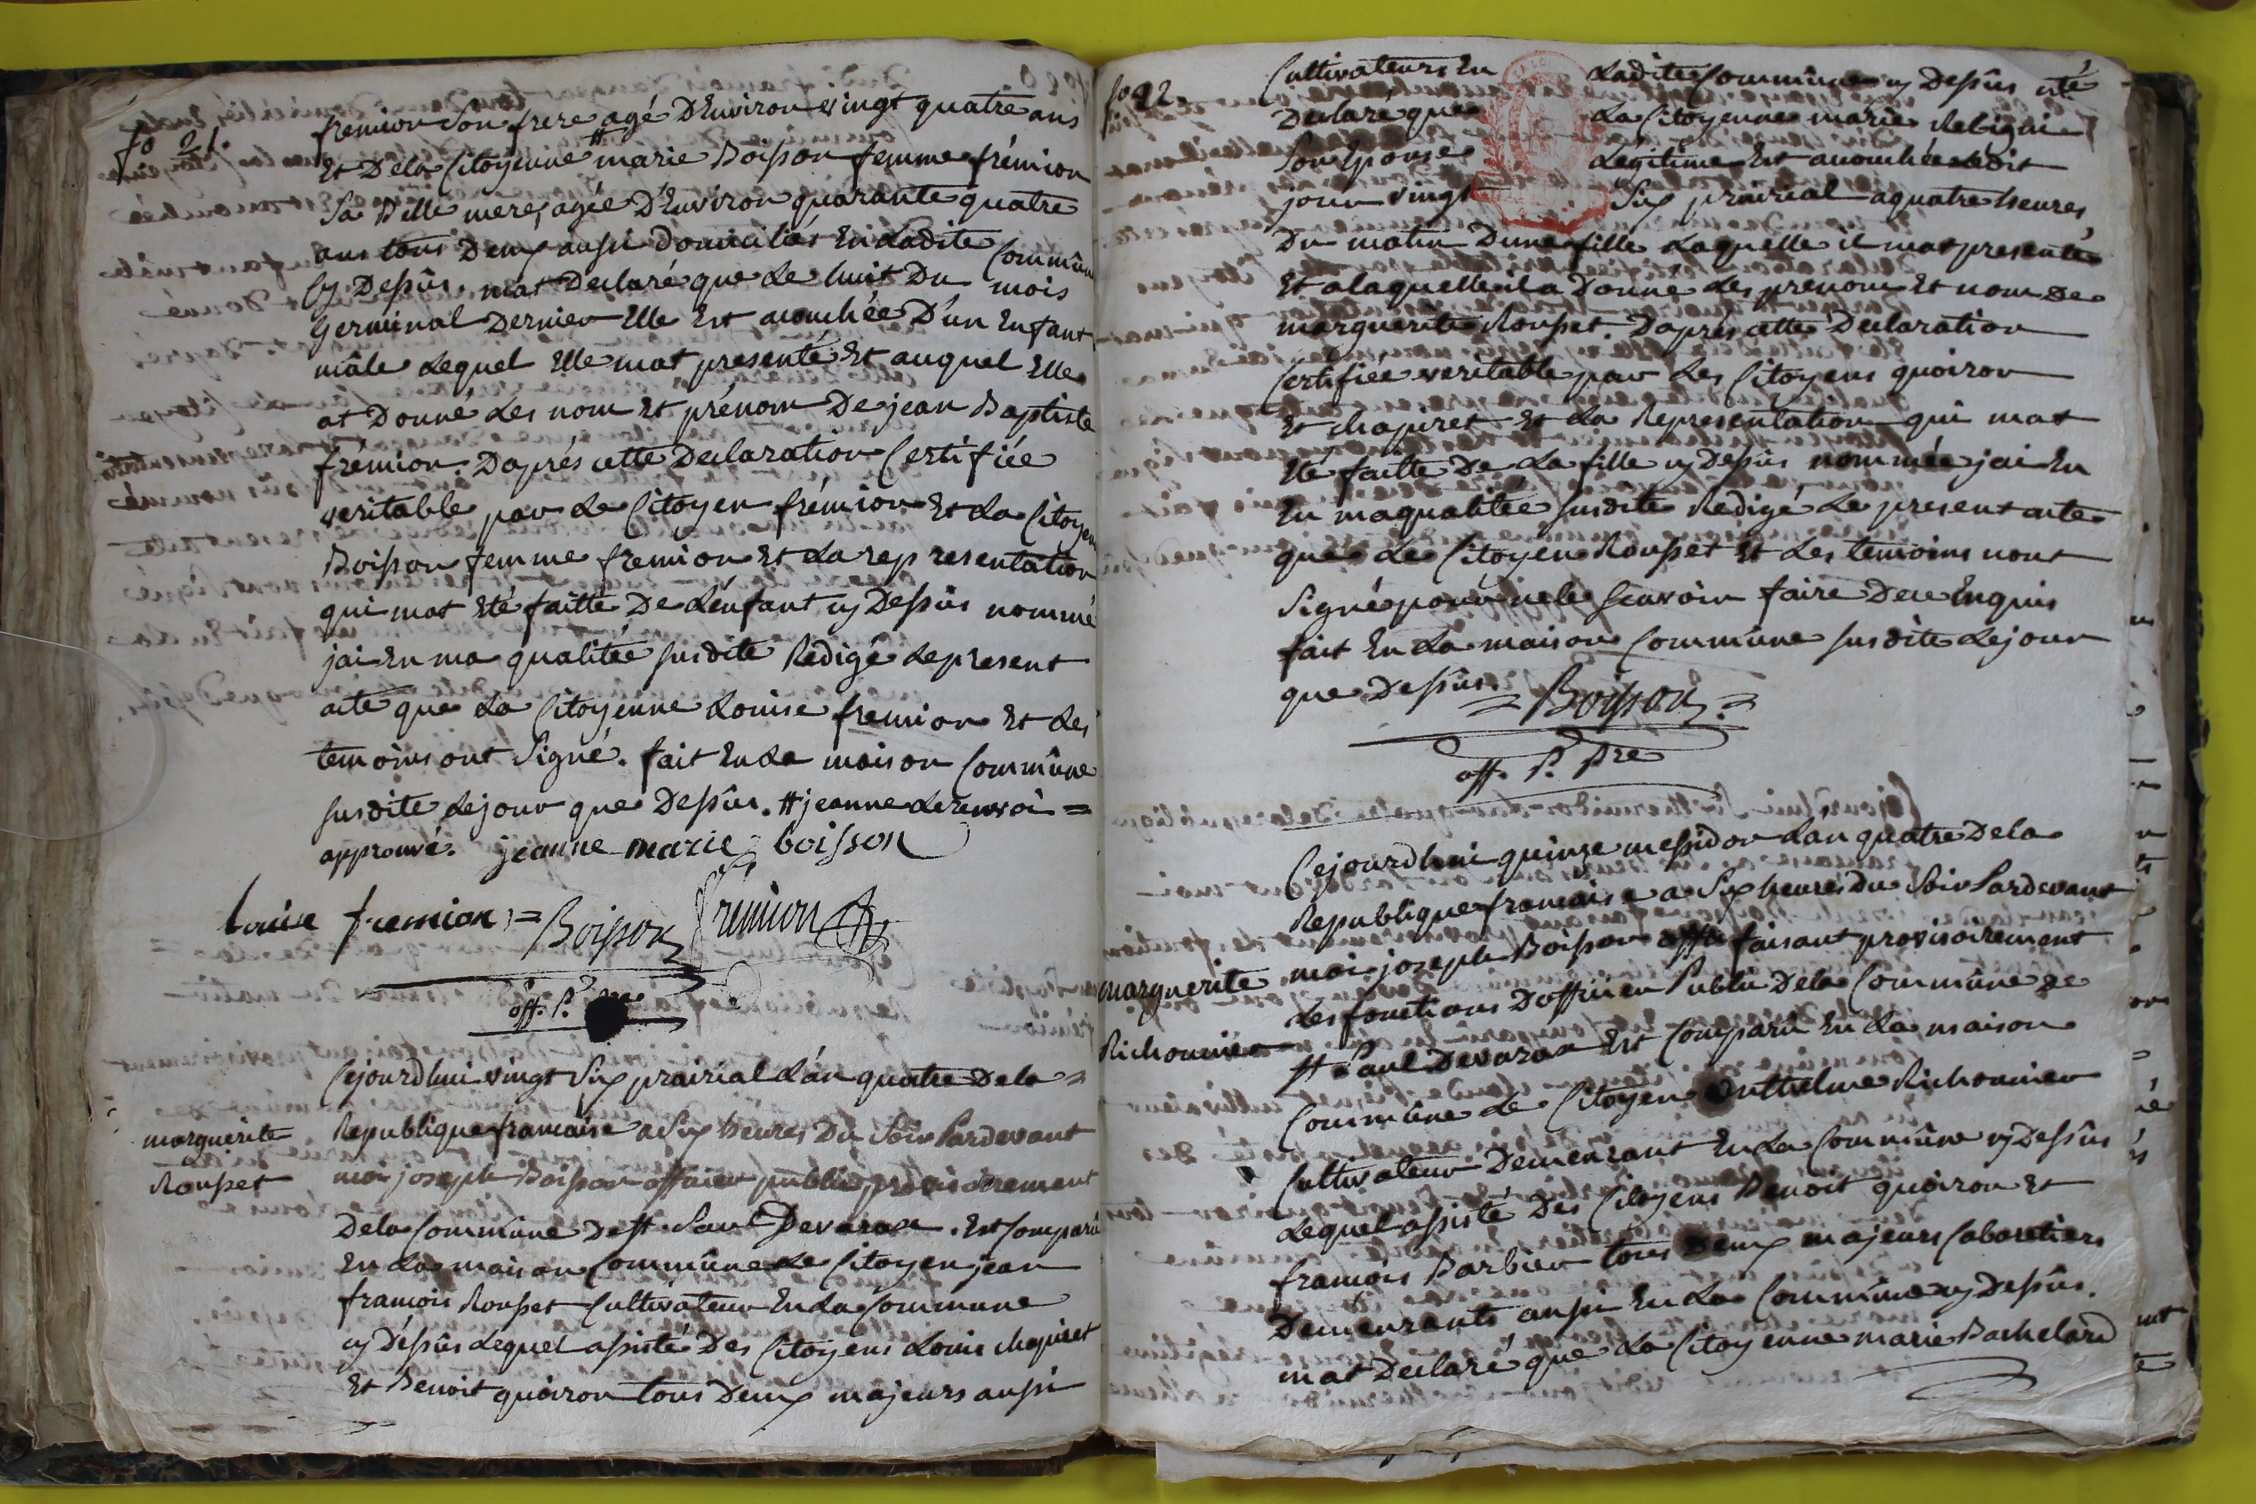 fo 21.
fremion Son frere agé D'Environ vingt quatre ans
Et Dela Citoyenne # marie Boisson femme frémion
Sa Belle mere, agée D'Environ quarante quatre
ans tous Deux aussi Domiciliés En Ladite Commûne
Cy Dessûs. mat Declaré que Le huit Du mois
Germinal Dernier Elle Est acouchée D'un Enfant
mâle Lequel Elle mat presenté Et auquel Elle
at Donné Les nom Et prénom De jean Baptiste
frémion. D'aprés cette Declaration Certifiée
veritable par Le Citoyen frémion Et La Citoyen
Boisson femme fremion Et La representation
qui mat Eté faitte De L'énfant cy Dessûs nommé
jai En ma qualitée susdite Redigé Le present
acte que La Citoyenne Louise fremion Et Les
temoins ont Signé. fait En La maison Commûne
susdite Lejour que Dessûs. # jeanne Le renvoi =
approuvé. jeanne marie boisson
louise fremion = Boisson fremion
off. P.
Cejourd'hui vingt Six prairial L'an quatre Dela =
marguerite
Rousset
Republique francaise a Six heures Du Soir Pardevant
moi joseph Boisson officier public provisoirement
Dela Commûne De st. Paul Devarax. Est Comparû
En La maison Commûne Le Citoyen jean
francois Rousset Cultivateur En La Commune
cy Déssûs Lequel assisté Des Citoyens Louis chapiret
Et Benoit quoiron tous Deux majeurs aussi
fo 22.
Cultivateurs En Ladite Commûne cy Dessûs
Declaré que La Citoyenne marie
Son Epouse Legitime Est acouchée Ledit
jour vingt Six prairial a quatre heures
Du matin D'une fille Laquelle il mat presentée
Et a laquelle il a Donné Les prenom Et nom De
marguerite Rousset. D'aprés cette Declaration
Certifiée veritable par Les Citoyens quoiron
Et chapiret Et La Representation qui mat
Eté faitte De La fille cy Dessûs nommée jai En
En maqualitée susdite Redigé Le present acte
que Le Citoyen Rousset Et Les temoins nont
Signé pour ne le Scavoir faire De ce Enquis
fait En La maison Commûne susdite Lejour
que Dessûs. = Boisson =
off. P. pre
Cejourd'hui quinze messidor L'an quatre Dela
Republique francaise a Six heures Du Soir Pardevant
marguerite
Richonnier
moi joseph Boisson faisant provisoirement
Les fonctions D'officier Public Dela Commûne De
st Paul Devarax Est Comparû En La maison
Commûne Le Citoyen Anthelme Richonnier
Cultivateur Demeurant En La Commûne cy Dessûs
Lequel assisté Des Citoyens Benoit quoiron Et
francois Barbier tous Deux majeurs Cabaretiers
Demeurants aussi En La Commûne cy Dessûs.
mat Declaré que La Citoyenne marie Bachelard